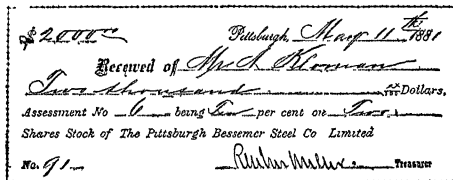 $2000.00 Pittsburgh, May 11th 1881
Received of Mr A Kloman
Two thousand Dollars,
Assessment No 6 being Ten per cent on Two
Shares Stock of The Pittsburgh Bessemer Steel Co Limited
No. 91 Reuben Miller Treasurer